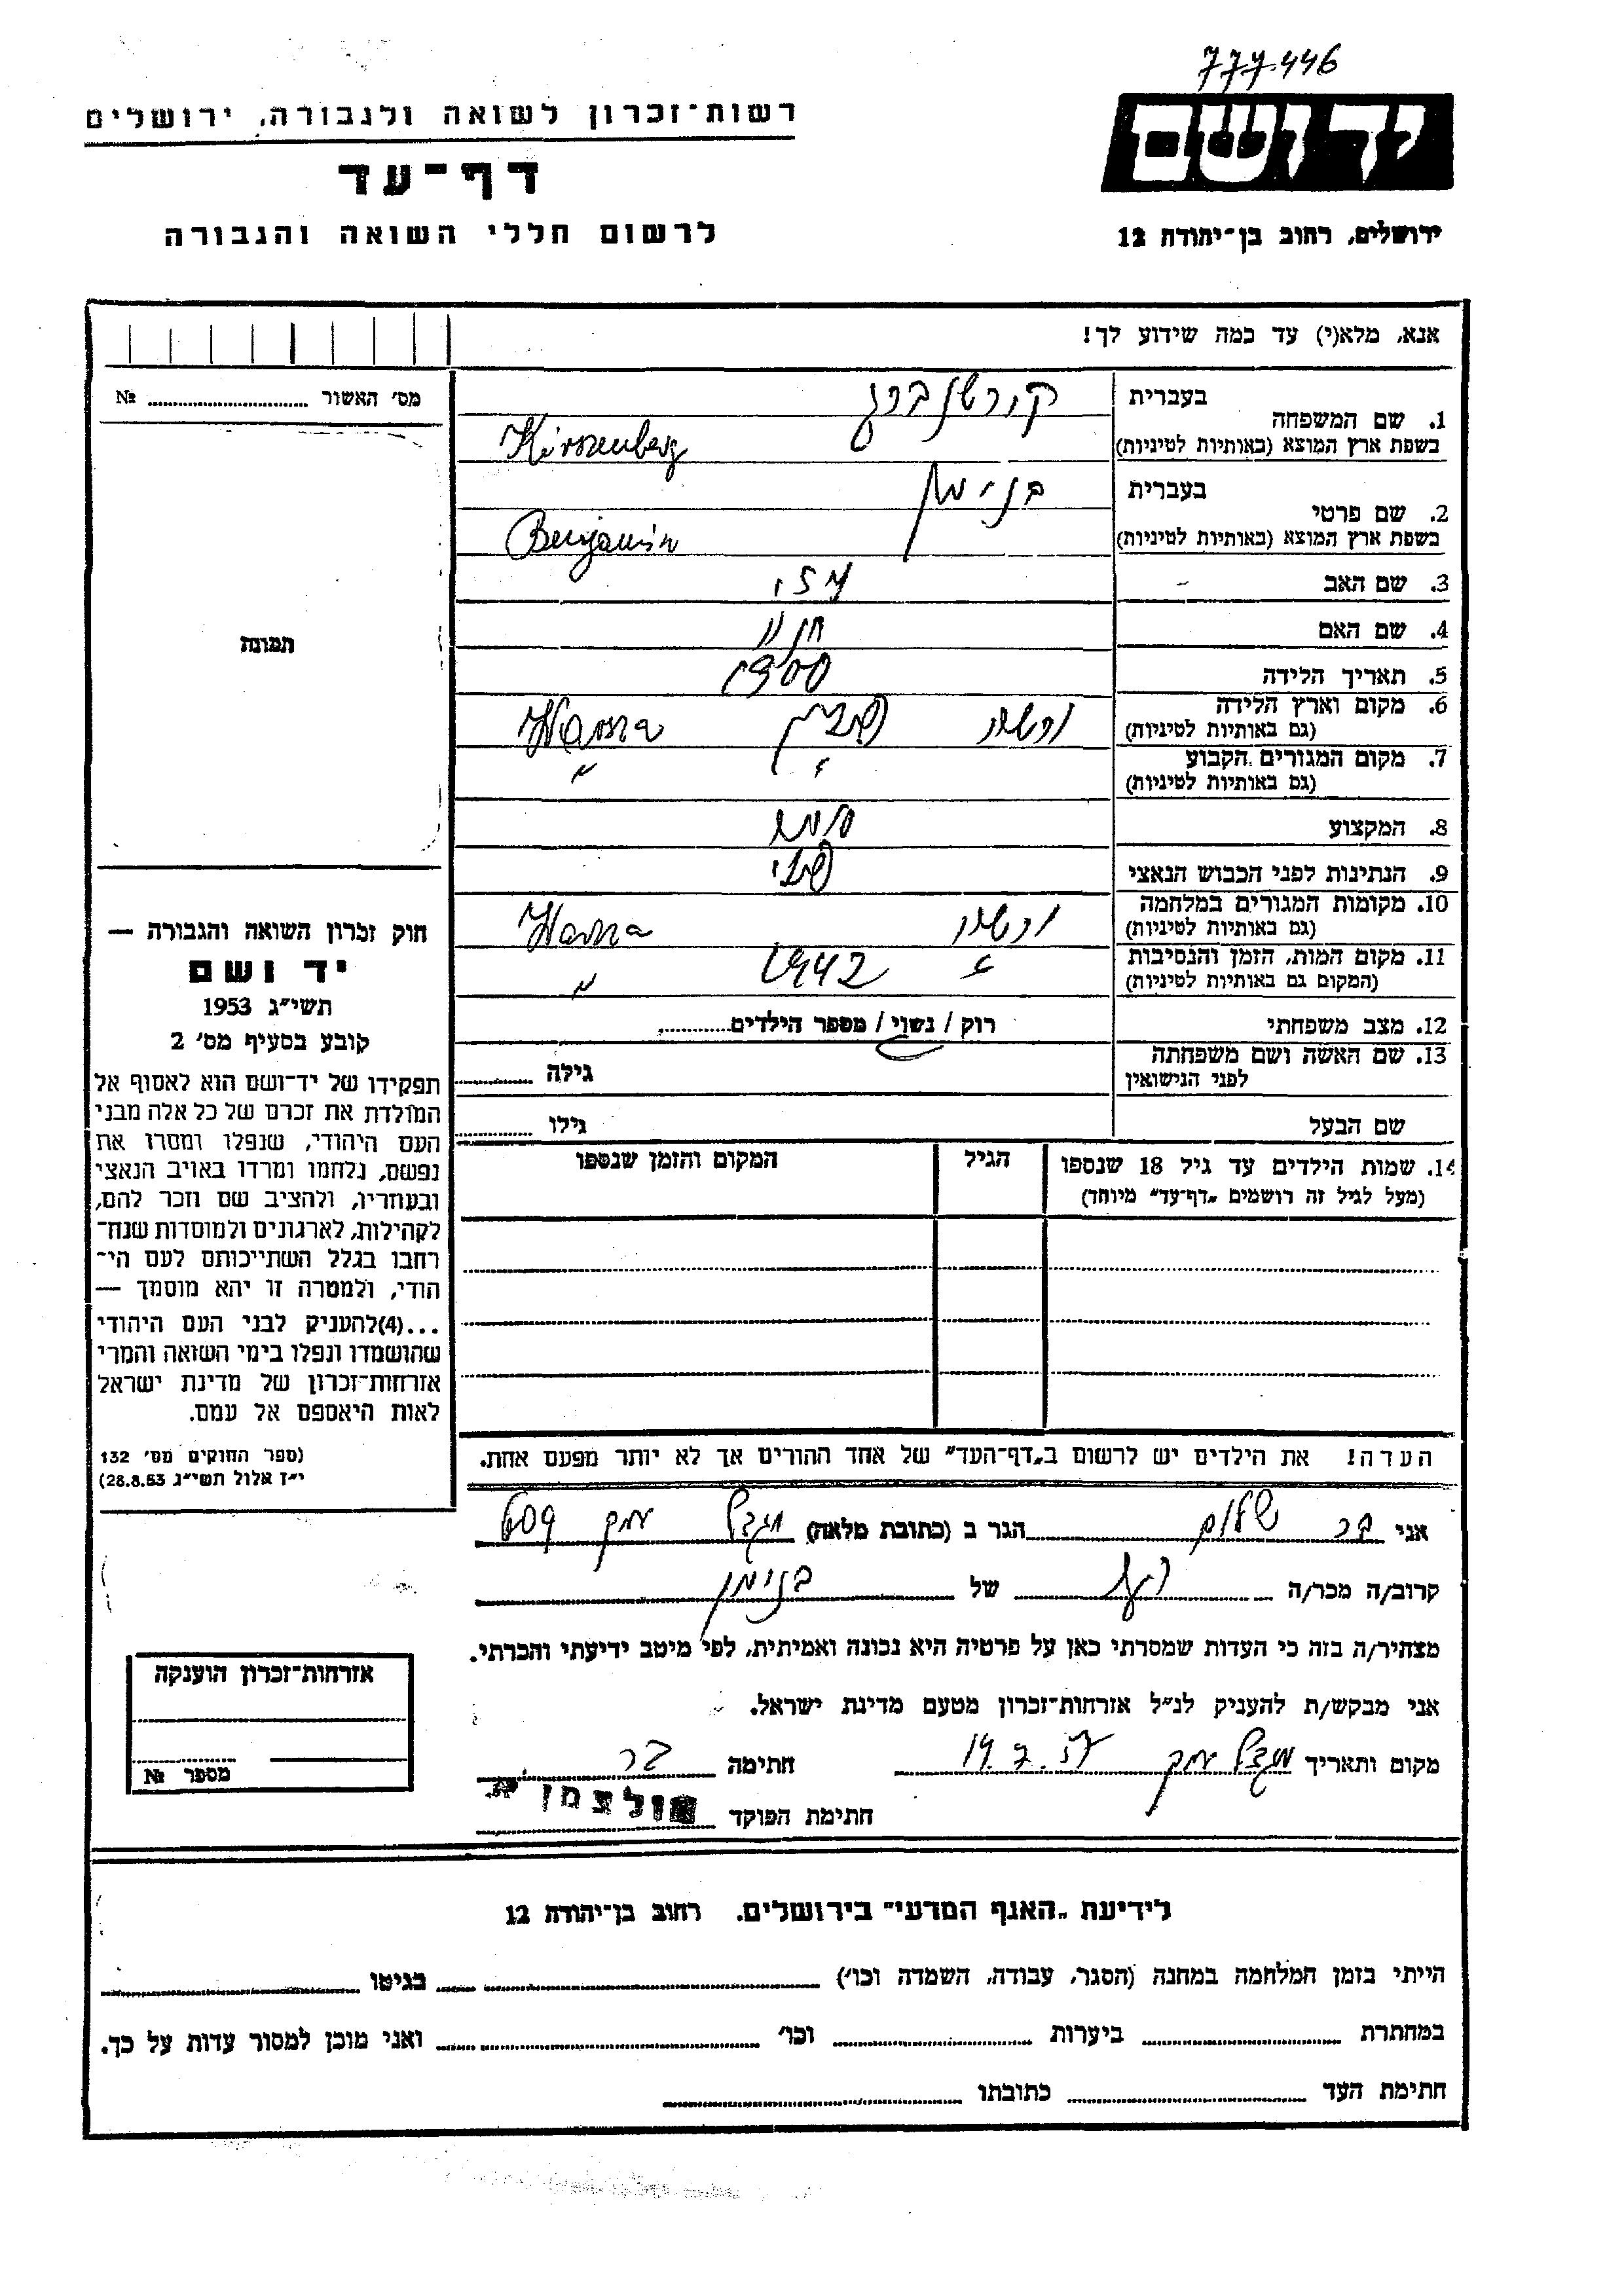 777446
רשות־זכרון לשואה ולגבורה, ירושלים
יד ושם
דף־עד
לרשום חללי השואה והגבורה
ירושלים, רחוב בן־יהודה 12
אנא, מלא(י) עד כמה שידוע לך!
מס׳ האשור № 
בעברית
1. שם המשפחה
קורשנברג
בשפת ארץ המוצא (באותיות לטיניות)
Kirszenberg
בעברית
2. שם פרטי
בנימין
בשפת ארץ המוצא (באותיות לטיניות)
Benjamin
3. שם האב
4. שם האם חנה
5. תאריך הלידה 1900
6. מקום וארץ הלידה (גם באותיות לטיניות) ורשה פולין
7. מקום המגורים הקבוע (גם באותיות לטיניות) " "
8. המקצוע
9. הנתינות לפני הכבוש הנאצי פולני
10. מקומות המגורים במלחמה (גם באותיות לטיניות) ורשה
11. מקום המות, הזמן והנסיבות (המקום גם באותיות לטיניות) " 1942 "
12. מצב משפחתי רוק / נשוי / מספר הילדים
13. שם האשה ושם משפחתה לפני הנישואין גילה
שם הבעל גילו
14. שמות הילדים עד גיל 18 שנספו (מעל לגיל זה רושמים „דף־עד” מיוחד) הגיל המקום והזמן שנספו
הערה! את הילדים יש לרשום ב„דף־העד” של אחד ההורים אך לא יותר מפעם אחת.
תמונה
חוק זכרון השואה והגבורה —
יד ושם
תשי״ג 1953
קובע בסעיף מס׳ 2
תפקידו של יד־ושם הוא לאסוף אל
המולדת את זכרם של כל אלה מבני
העם היהודי, שנפלו ומסרו את
נפשם, נלחמו ומרדו באויב הנאצי
ובעוזריו, ולהציב שם וזכר להם,
לקהילות, לארגונים ולמוסדות שנח־
רבו בגלל השתייכותם לעם הי־
הודי, ולמטרה זו יהא מוסמך —
...(4) להעניק לבני העם היהודי
שהושמדו ונפלו בימי השואה והמרי
אזרחות־זכרון של מדינת ישראל
לאות היאספם אל עמם.
(ספר החוקים מס׳ 132
י״ז אלול תשי״ג 28.8.53)
אני בר שלום הגר ב (כתובת מלאה) מגדל עמק 609
קרוב/ה מכר/ה של בנימין
מצהיר/ה בזה כי העדות שמסרתי כאן על פרטיה היא נכונה ואמיתית, לפי מיטב ידיעתי והכרתי.
אני מבקש/ת להעניק לנ״ל אזרחות־זכרון מטעם מדינת ישראל.
מקום ותאריך מגדל עמק 19.7.57 חתימה בר
חתימת הפוקד
אזרחות־זכרון הוענקה
מספר №
לידיעת „האגף המדעי” בירושלים. רחוב בן־יהודה 12
הייתי בזמן המלחמה במחנה (הסגר, עבודה, השמדה וכו׳) בגיטו
במחתרת ביערות וכו׳ ואני מוכן למסור עדות על כך.
חתימת העד כתובתו